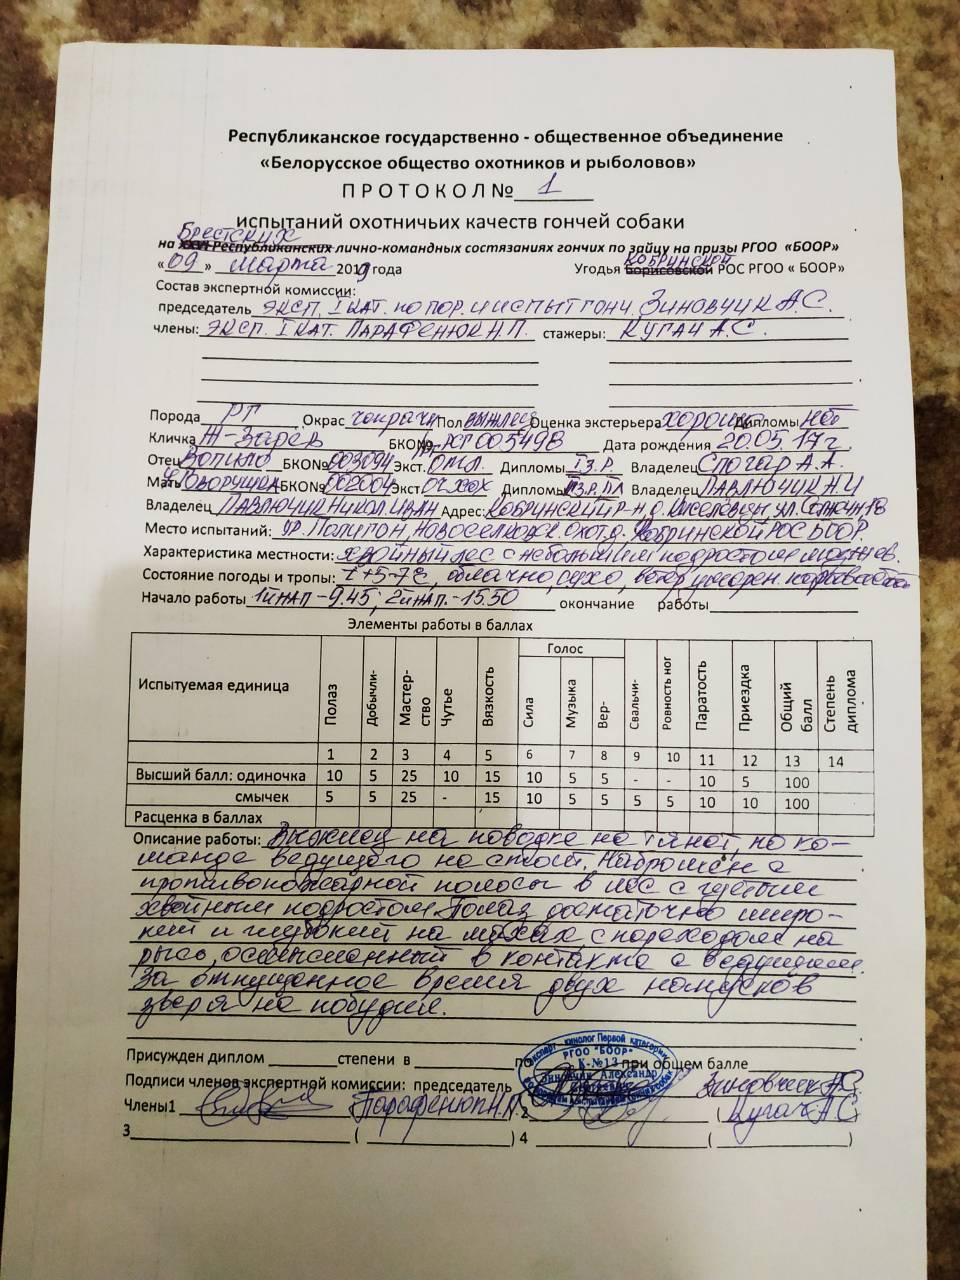 Республиканское государственно - общественное объединение
«Белорусское общество охотников и рыболовов»
П Р О Т О К О Л № 1
испытаний охотничьих качеств гончей собаки
Брестских
на XXVI Республиканских лично-командных состязаниях гончих по зайцу на призы РГОО «БООР»
Кобринской
«09» марта 2019 года Угодья Борисовской РОС РГОО « БООР»
Состав экспертной комиссии:
председатель эксп. I кат. по пор. и испыт гонч. Зиновчик А.С.
члены: эксп. I кат. Парафенюк Н.П. стажеры: Кугач А.С.
Порода РГ Окрас чепрачн Пол выжлец Оценка экстерьера хорошо Дипломы нет
Кличка Ж-Зарев БКО№ РГ 005498 Дата рождения 20.05.17г.
Отец Вопило БКО№ 003094 Экст. отл. Дипломы Владелец Слогар А.А.
Мать БКО№ 002004 Экст оч.хор Дипломы Владелец Павлючик Н.И
Владелец Павлючик Никол Иван Адрес: Кобринский р-н д. Киселевцы ул.
Место испытаний: ур. Полигон, Новоселковск. охот.д. Кобринской РОС БООР.
Характеристика местности: хвойный лес с небольшим подростом местнев.
Состояние погоды и тропы: t +5-7 С, облачно, сухо, ветер умерен.
Начало работы 1й нап – 9.45; 2й нап. – 15.50 окончание работы
Элементы работы в баллах
Испытуемая единица Полаз Добычли- Мастер-ство Чутье Вязкость Голос Сила Музыка Вер- Свальчи- Ровность ног Паратость Приездка Общий балл Степень диплома
1 2 3 4 5 6 7 8 9 10 11 12 13 14
Высший балл: одиночка 10 5 25 10 15 10 5 5 - - 10 5 100
смычек 5 5 25 - 15 10 5 5 5 5 10 10 100
Расценка в баллах
Описание работы: Выжлец на поводке не тянет, по ко-
манде ведущего не стоял. Наброшен с
противопожарной полосы в лес с густым
хвойным подростом. Полаз достаточно широ-
кий и глубокий на махах, с переходом на
рысь, осмысленный в контакте с ведущим.
За отпущенное время двух напусков
зверя не побудил.
Присужден диплом степени в по при общем балле
Эксперт - кинолог Первой категории
РГОО "БООР"
К-№13
Зиновчик Александр
Подписи членов экспертной комиссии: председатель Зиновчик АС
Члены1 Парафенюк Н.П. 2 ( Кугач А С )
3 ( ) 4 ( )